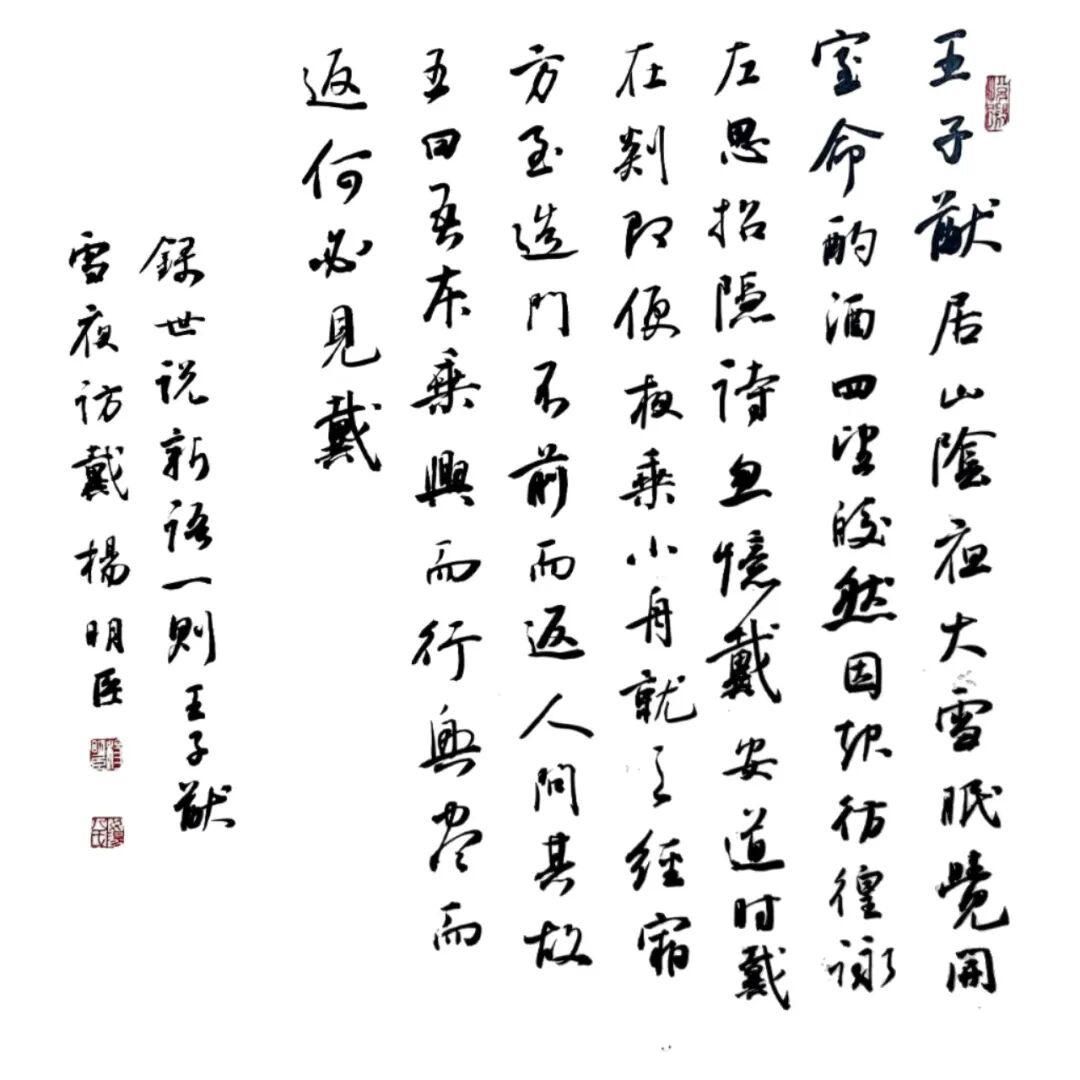 王子猷居山陰夜大雪眠覺開
室命酌酒四望皎然因起彷徨詠
左思招隱詩忽憶戴安道时戴
在剡即便夜乘小舟就之經宿
方至造門不前而返人問其故
王曰吾本乘興而行興尽而
返何必見戴
録世说新语一则王子猷
雪夜访戴楊明臣